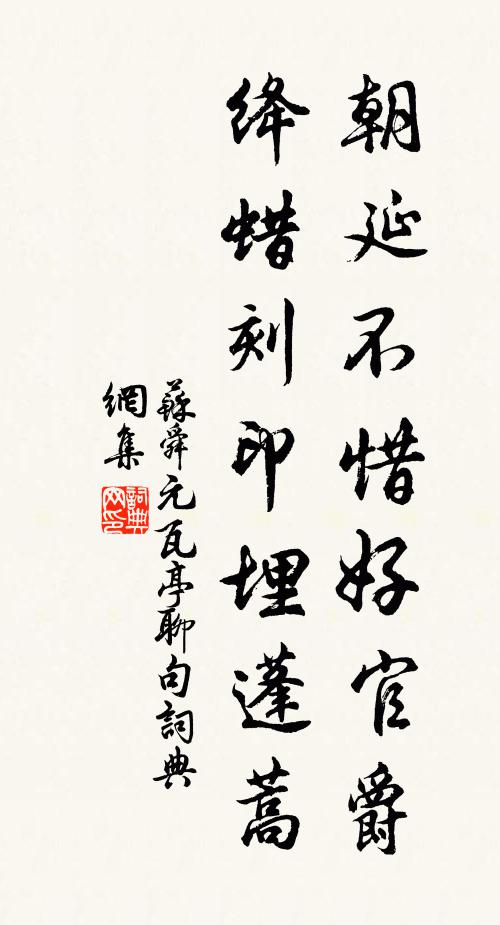 朝延不惜好官爵
绛蜡刻印埋蓬蒿
蘇舜元瓦亭聊句詞典
網集
詞典網印